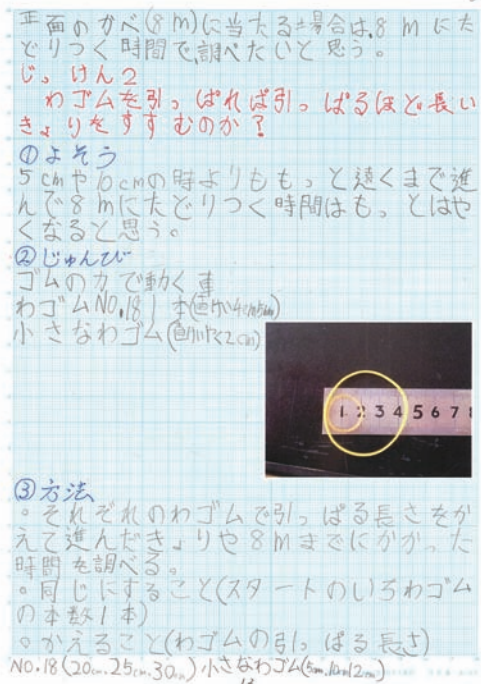 正面のかべ(8m)に当たる場合は、8mにた
どりつく時間で調べたいと思う。
じっけん2
わゴムを引っぱれば引っぱるほど、長い
きょりをすすむのか?
①よそう
5cmや10cmの時よりももっと遠くまで進
んで8mにたどりつく時間はもっとはや
くなると思う。
②じゅんび
ゴムの力で動く車
わゴムNO.18 1本
小さなわゴム
1 2 3 4 5 6 7 8
③方法
○それぞれのわゴムで引っぱる長さをか
えて進んだきょりや8mまでにかかった
時間を調べる。
○同じにすること(スタートのいちわゴム
の本数1本)
○かえること(わゴムの引っぱる長さ)
NO.18(20cm.25cm.30cm)小さなわゴム(5cm.10cm12cm)
13